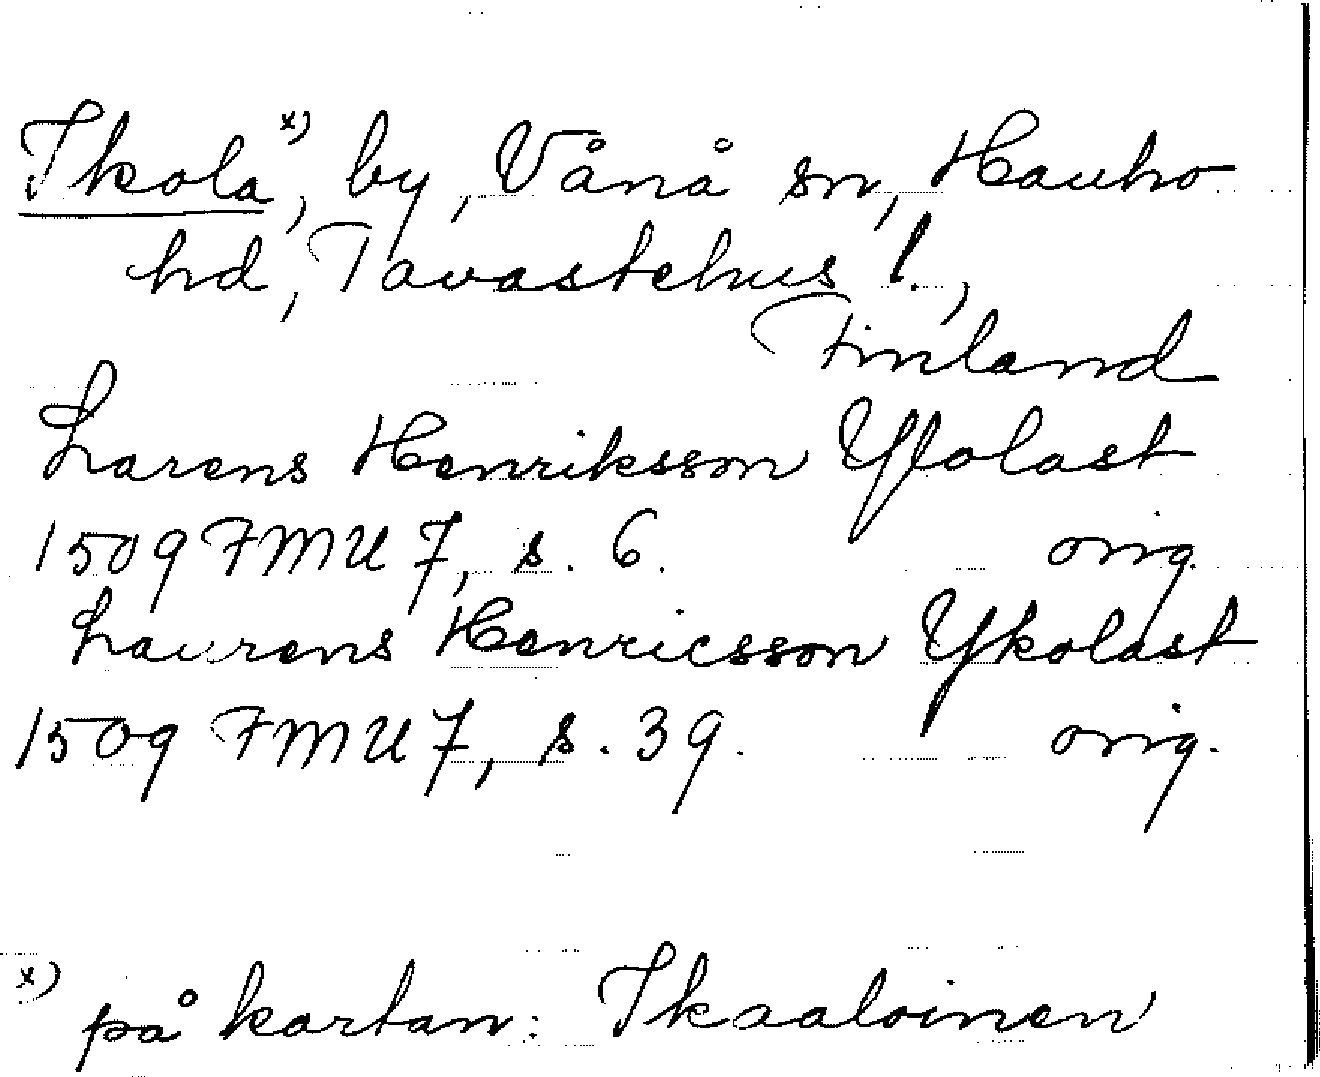 Ikola x), by, Vånå sn, Hauho
hd, Tavastehus l.,
Finland
Larens Henriksson Ykolast
1509 FMU 7, s. 6. orig.
Laurens Henricsson Ykolast
1509 FMU 7, s. 39. orig.
x) på kartan: Ikaaloinen